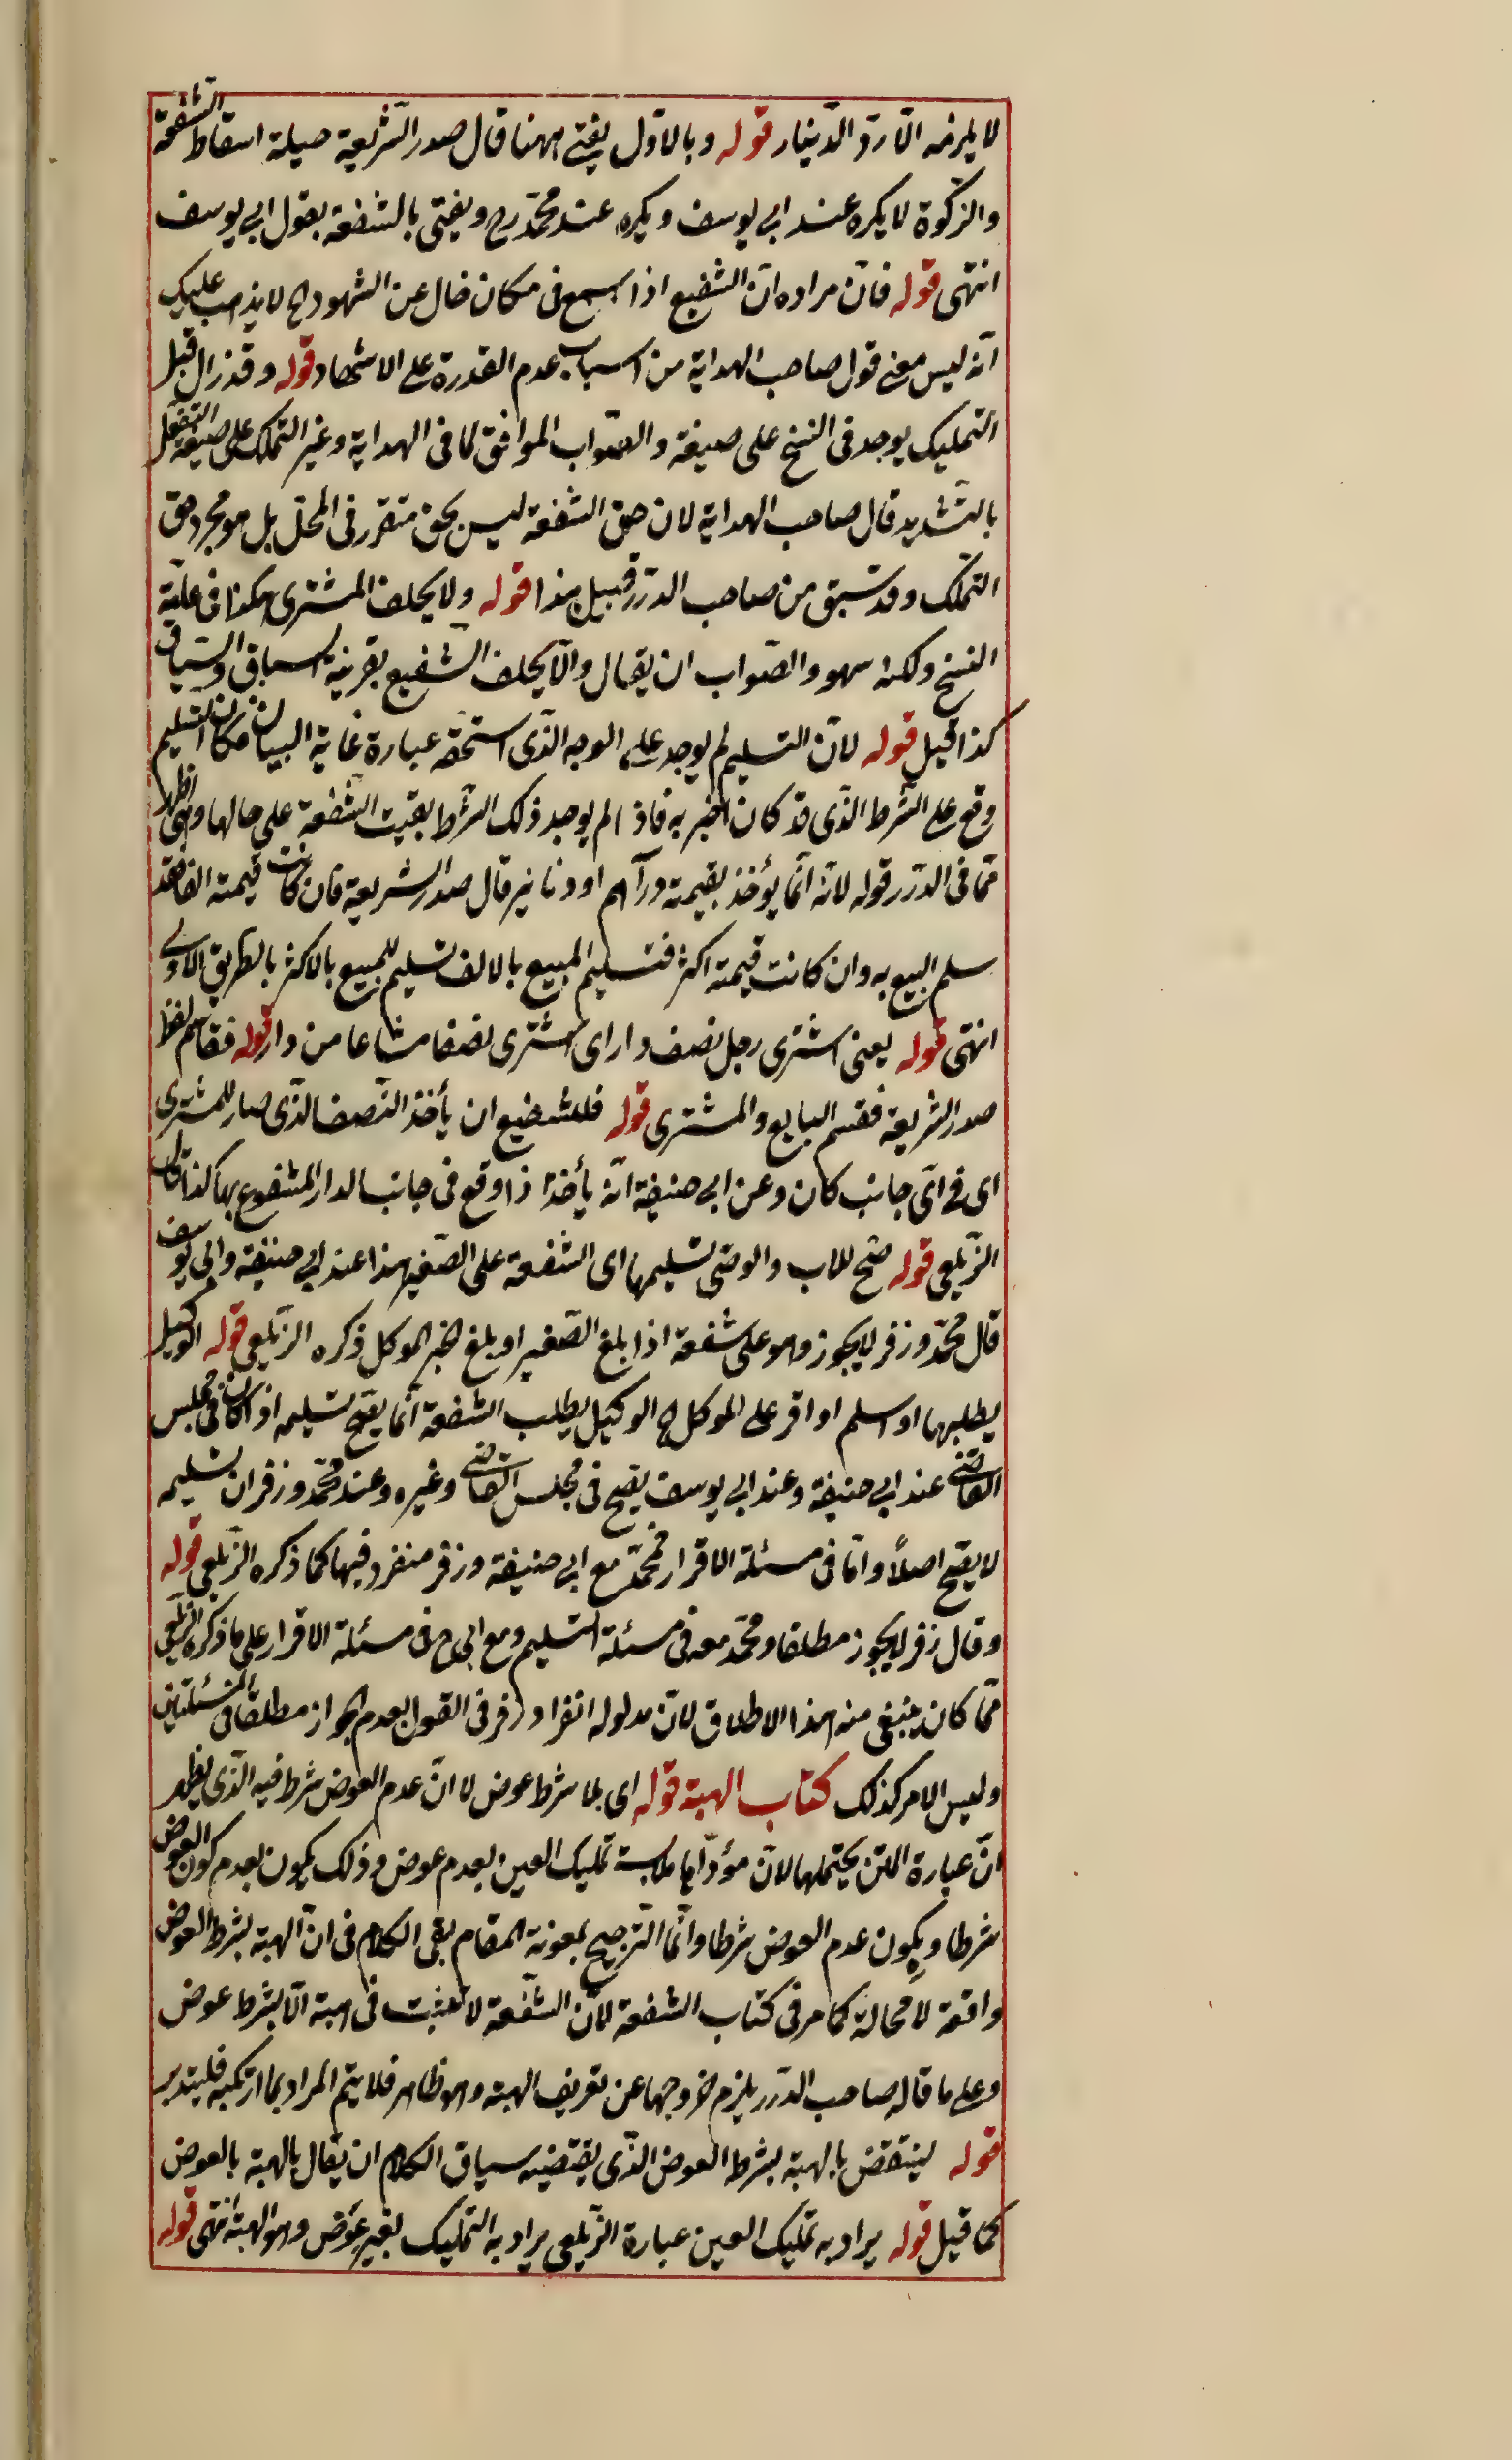 لا يلزمه الّا ردّ الدّينار قوله وبالاوّل يفتى ههنا قال صدر الشّريعة حيلة اسقاط الشّفعة
والزّكوة لا يكره عند ابى يوسف ويكره عند محمّد رح ويفتى بالشفعة بقول ابى يوسف
انتهى قوله فانّ مراده انّ الشفيع اذا سمع فى مكان خال عن الشهود الخ لا يذهب عليك
انّه ليس معنى قول صاحب الهداية من اسباب عدم القدرة على الاشهاد قوله وقد زال قبل
التمليك يوجد فى النسخ على صيغة والصّواب الموافق لما فى الهداية وغير التملّك على صيغة التفعّل
بالتّشديد قال صاحب الهداية لان حق الشفعة ليس بحق متقرر فى المحلّ بل هو مجرد حق
التملّك وقد سبق من صاحب الدّرر قبيل هذا قوله ولا يحلف المشترى هكذا فى عامّة
النسخ ولكنّه سهو والصّواب ان يقال والّا يحلف الشّفيع بقرينة السباق والسّياق
كذا قيل قوله لانّ التسليم لم يوجد على الوجه الّذى استحقّه عبارة غاية البيان فكان التسليم
وقع على الشّرط الّذى قد كان اخبر به فاذا لم يوجد ذلك الشّرط بقيت الشفعة على حالها وهى اظهر
ممّا فى الدّرر قوله لانّه انّما يؤخذ بقيمته دراهم او دنانير قال صدر الشريعة فان كانت قيمته الفا فقد
سلم البيع به وان كانت قيمته اكثر فتسليم المبيع بالالف تسليم للمبيع بالاكثر بالطريق الاولى
انتهى قوله يعنى اشترى رجل نصف دار اى اشترى نصفا مشاعا من دار قوله فقاسم لفظ
صدر الشريعة فقسم البايع والمشترى قوله فللشفيع ان يأخذ النّصف الّذى صار للمشترى
اى فى اىّ جانب كان وعن ابى حنيفة انّه يأخذ اذا وقع فى جانب الدار المشفوع بها كذا قال
الزّيلعى قوله صحّ للاب والوصىّ تسليمها اى الشفعة على الصّغير هذا عند ابى حنيفة وابى يوسف
قال محمّد وزفر لا يجوز وهو على شفعة اذا بلغ الصّغير او بلغ الخبر الموكل ذكره الزّيلعى قوله الوكيل
بطلبها او اسلم او اقر على الموكل الخ الوكيل بطلب الشفعة انّما يصحّ تسليمه اذا كان فى مجلس
القاضى عند ابى حنيفة وعند ابى يوسف يصح فى مجلس القاضى وغيره وعند محمّد وزفر ان تسليمه
لا يصحّ اصلًا وامّا فى مسئلة الاقرار فمحمّد مع ابى حنيفة وزفر منفرد فيها كما ذكره الزّيلعى قوله
وقال زفر لا يجوز مطلقا ومحمّد معه فى مسئلة التسليم ومع ابى ح فى مسئلة الاقرار على ما ذكره الزّيلعى
ممّا كان ينبغى منه هذا الاطلاق لانّ مدلوله انفراد زفر فى القول بعدم الجواز مطلقا فى المسئلتين
وليس الامر كذلك كتاب الهبة قوله اى بلا شرط عوض لا انّ عدم العوض شرط فيه الّذى يظهر
انّ عبارة المتن يحتملها لانّ مؤدّاها ملابسة تمليك العين بعدم عوض وذلك يكون بعدم كون العوض
شرطا ويكون عدم العوض شرطا وانّما التّرجيح بمعونة المقام بقى الكلام فى انّ الهبة بشرط العوض
واقعة لا محالة كما مر فى كتاب الشفعة لانّ الشّفعة لا تثبت فى هبة الّا بشرط عوض
وعلى ما قاله صاحب الدّرر يلزم خروجها عن تعريف الهبة وهو ظاهر فلا يتم المراد بما ارتكبه فليتدبر
قوله لينتقض بالهبة بشرط العوض الّذى يقتضيه سياق الكلام ان يقال بالهبة بالعوض
كما قيل قوله يراد به تمليك العين عبارة الزّيلعى يراد به التمليك بغير عوض وهو الهبة انتهى قوله